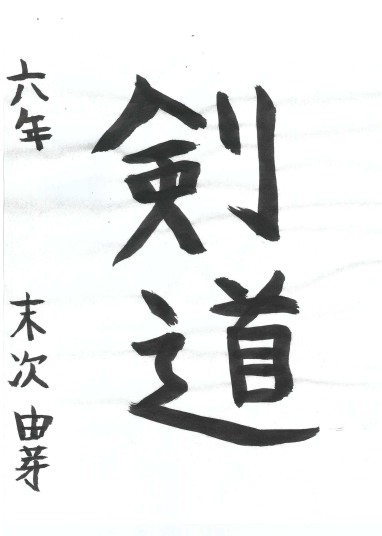 剣道
六年 末次 由芽